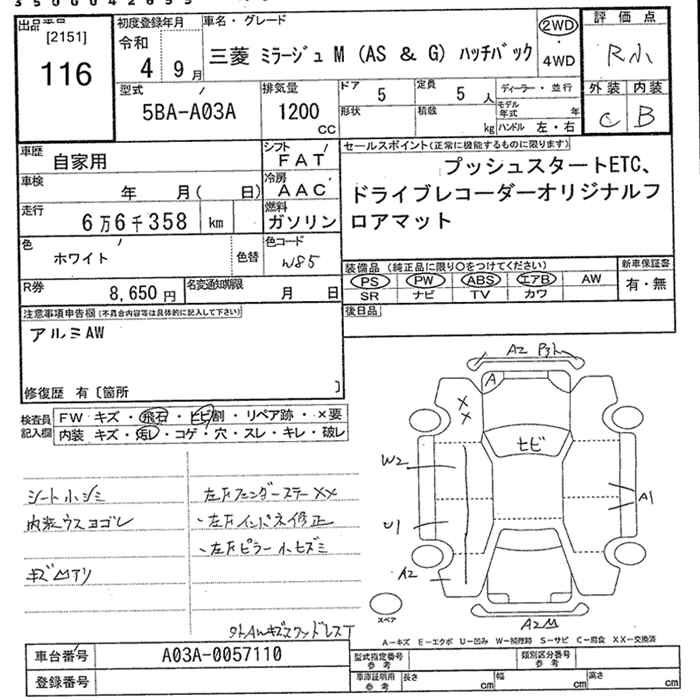 出品番号
[2151]
116
初度登録年月
令和
4 9月
車名・グレード
三菱 ミラージュ M (AS & G) ハッチバック
2WD
・
4WD
評価点
R小
外装 内装
C B
型式
5BA-A03A
排気量
1200
CC
ドア
5
定員
5 人
ディーラー・並行
形状
積載
kg
モデル年式 年
ハンドル 左・右
車歴
自家用
シフト
FAT
車検
年 月( 日)
冷房
AAC
走行
6万6千358 km
燃料
ガソリン
色
ホワイト
色替
色コード
W85
R券
8,650円
名変通知期限
月 日
セールスポイント(正常に機能するものに限ります)
プッシュスタートETC、
ドライブレコーダーオリジナルフ
ロアマット
装備品(純正品に限り○をつけてください)
PS PW ABS エアB AW
SR ナビ TV カワ
新車保証書
有・無
後日品
注意事項申告欄(不具合内容等は具体的に記入して下さい)
アルミAW
修復歴 有〔箇所 〕
検査員
記入欄
FW キズ・飛石・ヒビ割・リペア跡・×要
内装 キズ・汚レ・コゲ・穴・スレ・キレ・破レ
シート小シミ
内装ウスヨゴレ
キズ凹アリ
左Fフェンダーステー XX
左Fインパネ修正
左Fピラー小ヒズミ
A2
A
XX
ヒビ
W2
U1
A2
A1
A2凹
スペア
A-キズ E-エクボ U-凹み W-補修跡 S-サビ C-腐食 XX-交換済
車台番号
A03A-0057110
登録番号
型式指定番号
参考
類別区分番号
参考
車庫証明用
参考
長さ cm
幅 cm
高さ cm